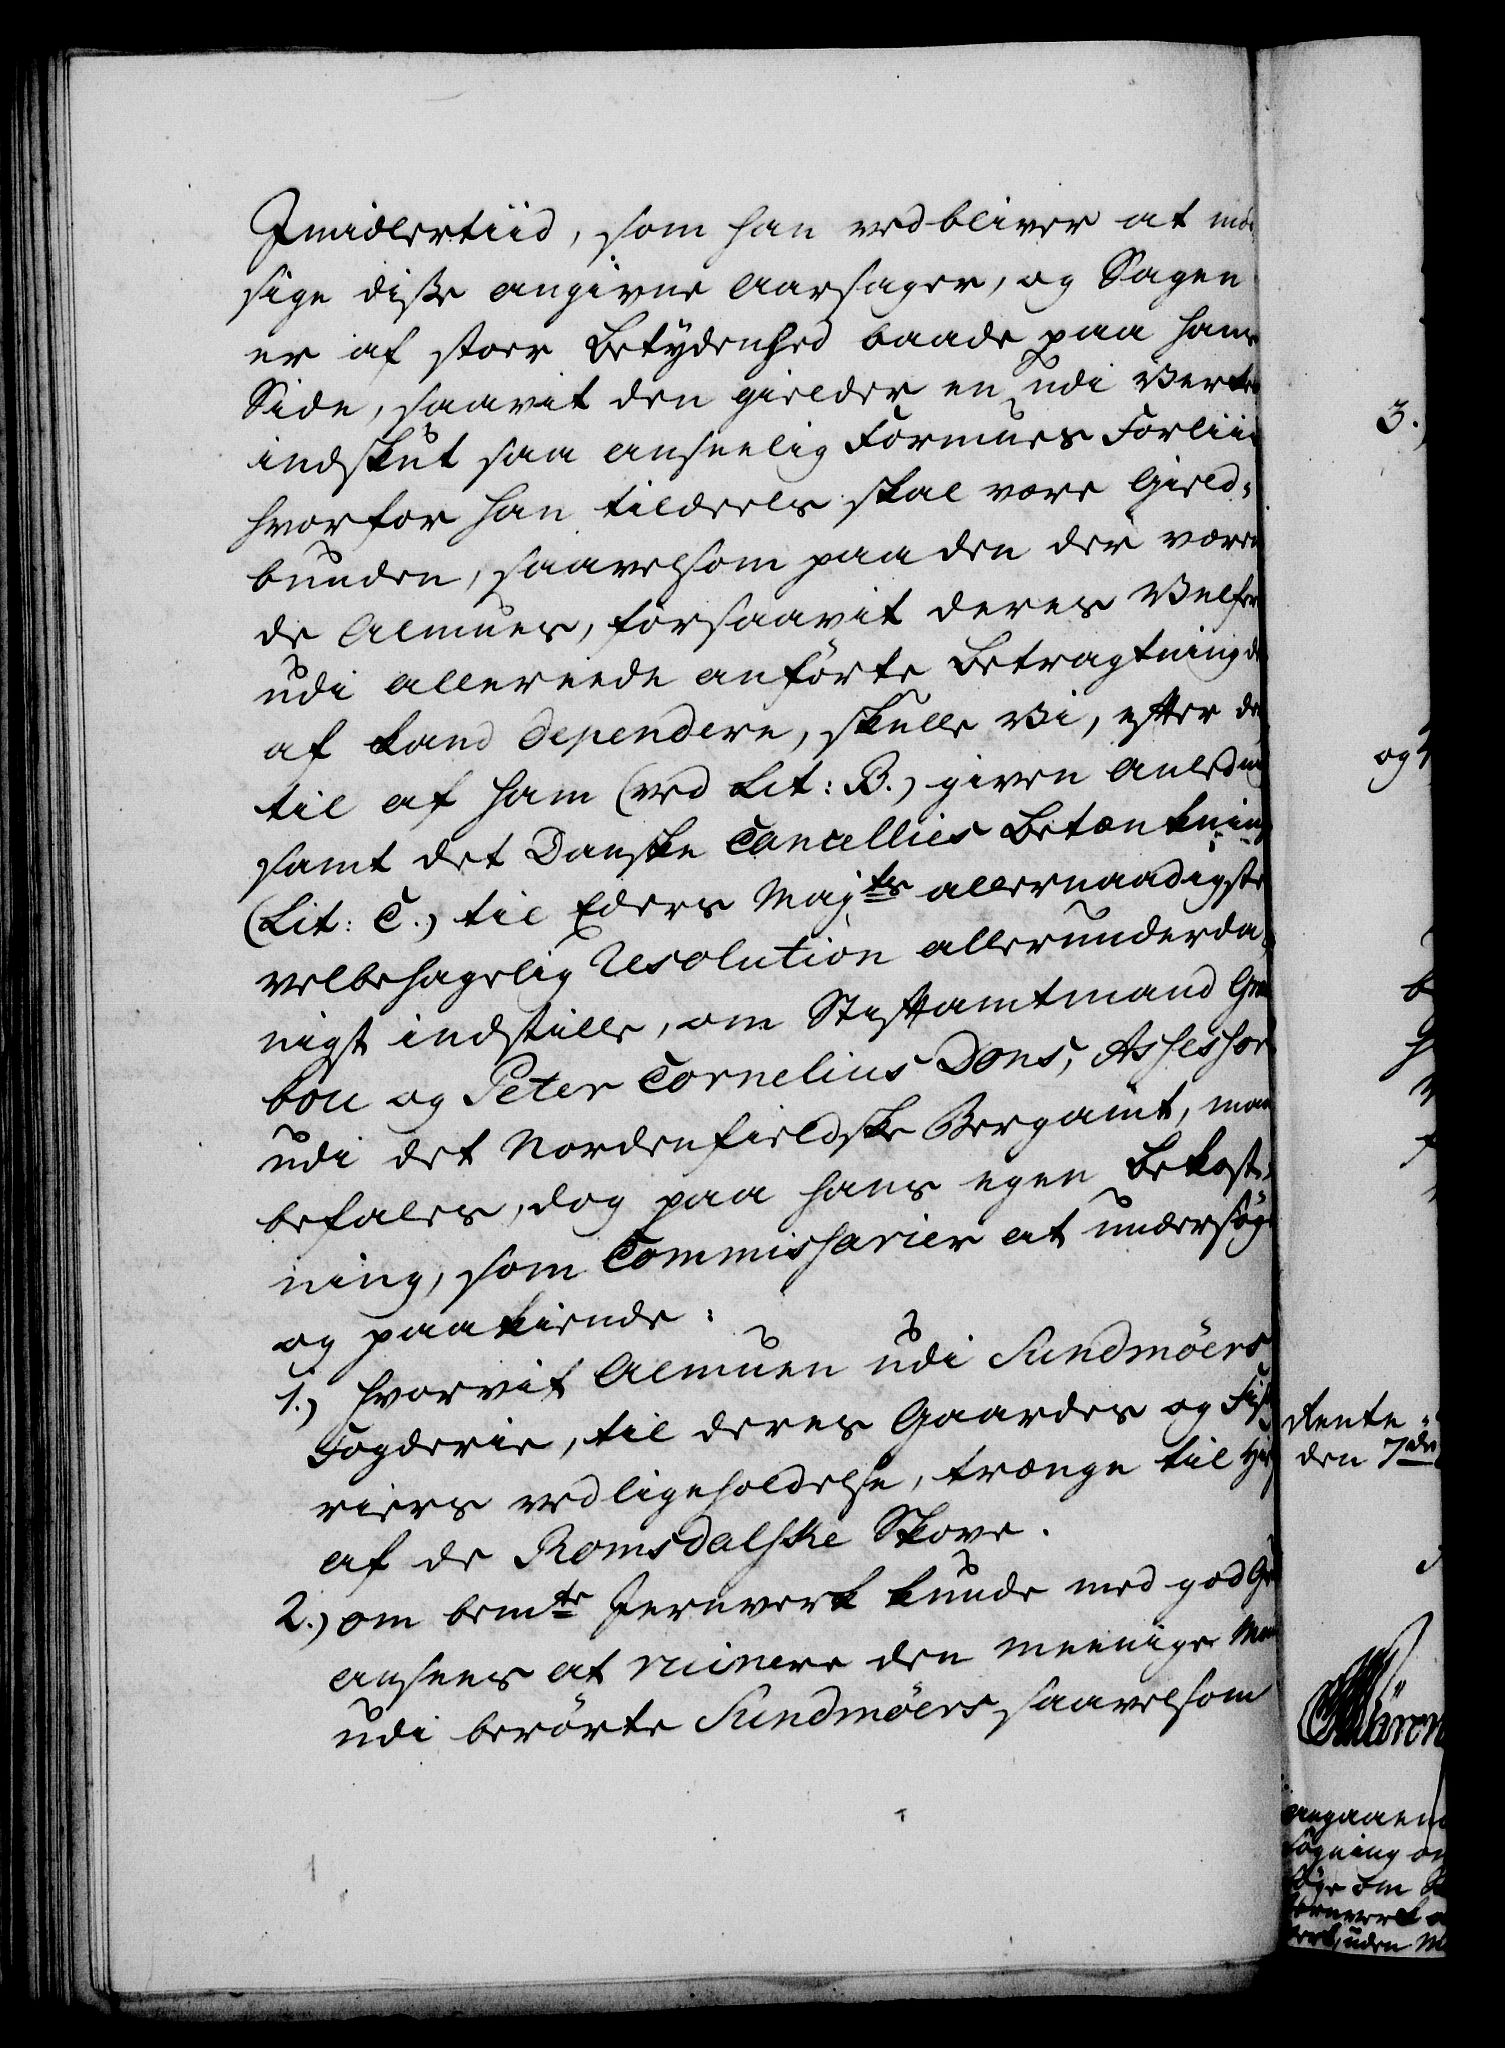 Imidlertiid, som han vedbliver at mod
sige diße angivne Aarsager, og Sagen
er af stoer Betydenhed baade paa hans
Side, saavit den gielder en udi Verket
indskut saa anseelig Formues Forliis
hvorfor han tildeels skal være Gield-
bunden, saavelsom paa den der væren
de Almues, forsaavit deres Velfær
udi allereede anførte Betragtning der
af kand dependere, skulle Vi, efter der
til af ham (ved Lit: B.) given Anledning
samt det Danske Cancellies Betænkning
(Lit: C.) til Eders Majts allernaadigste
velbehagelig Resolution allerunderda
nigst indstille, om Stiftamtmand Gra
bou og Peter Cornelius Dons, Assessor
udi det Nordenfieldske Bergamt, maae
befales, dog paa hans egen Bekost-
ning, som Commissarier at undersøge
og paakiende:
1.) hvorvit Almuen udi Sundmøers
Fogderie, til deres Gaardes og Fiske
riers vedligeholdelse, trænge til Hielp
af de Romsdalske Skove.
2.) om bemte Jernverk kunde med god Gr
ansees at ruinere den meenige Mand
udi berørte Sundmøers, saavelsom
3.)
og
Rente-
den 7de
angaaen
søgning om
søge om
Jernverk
verk, uden